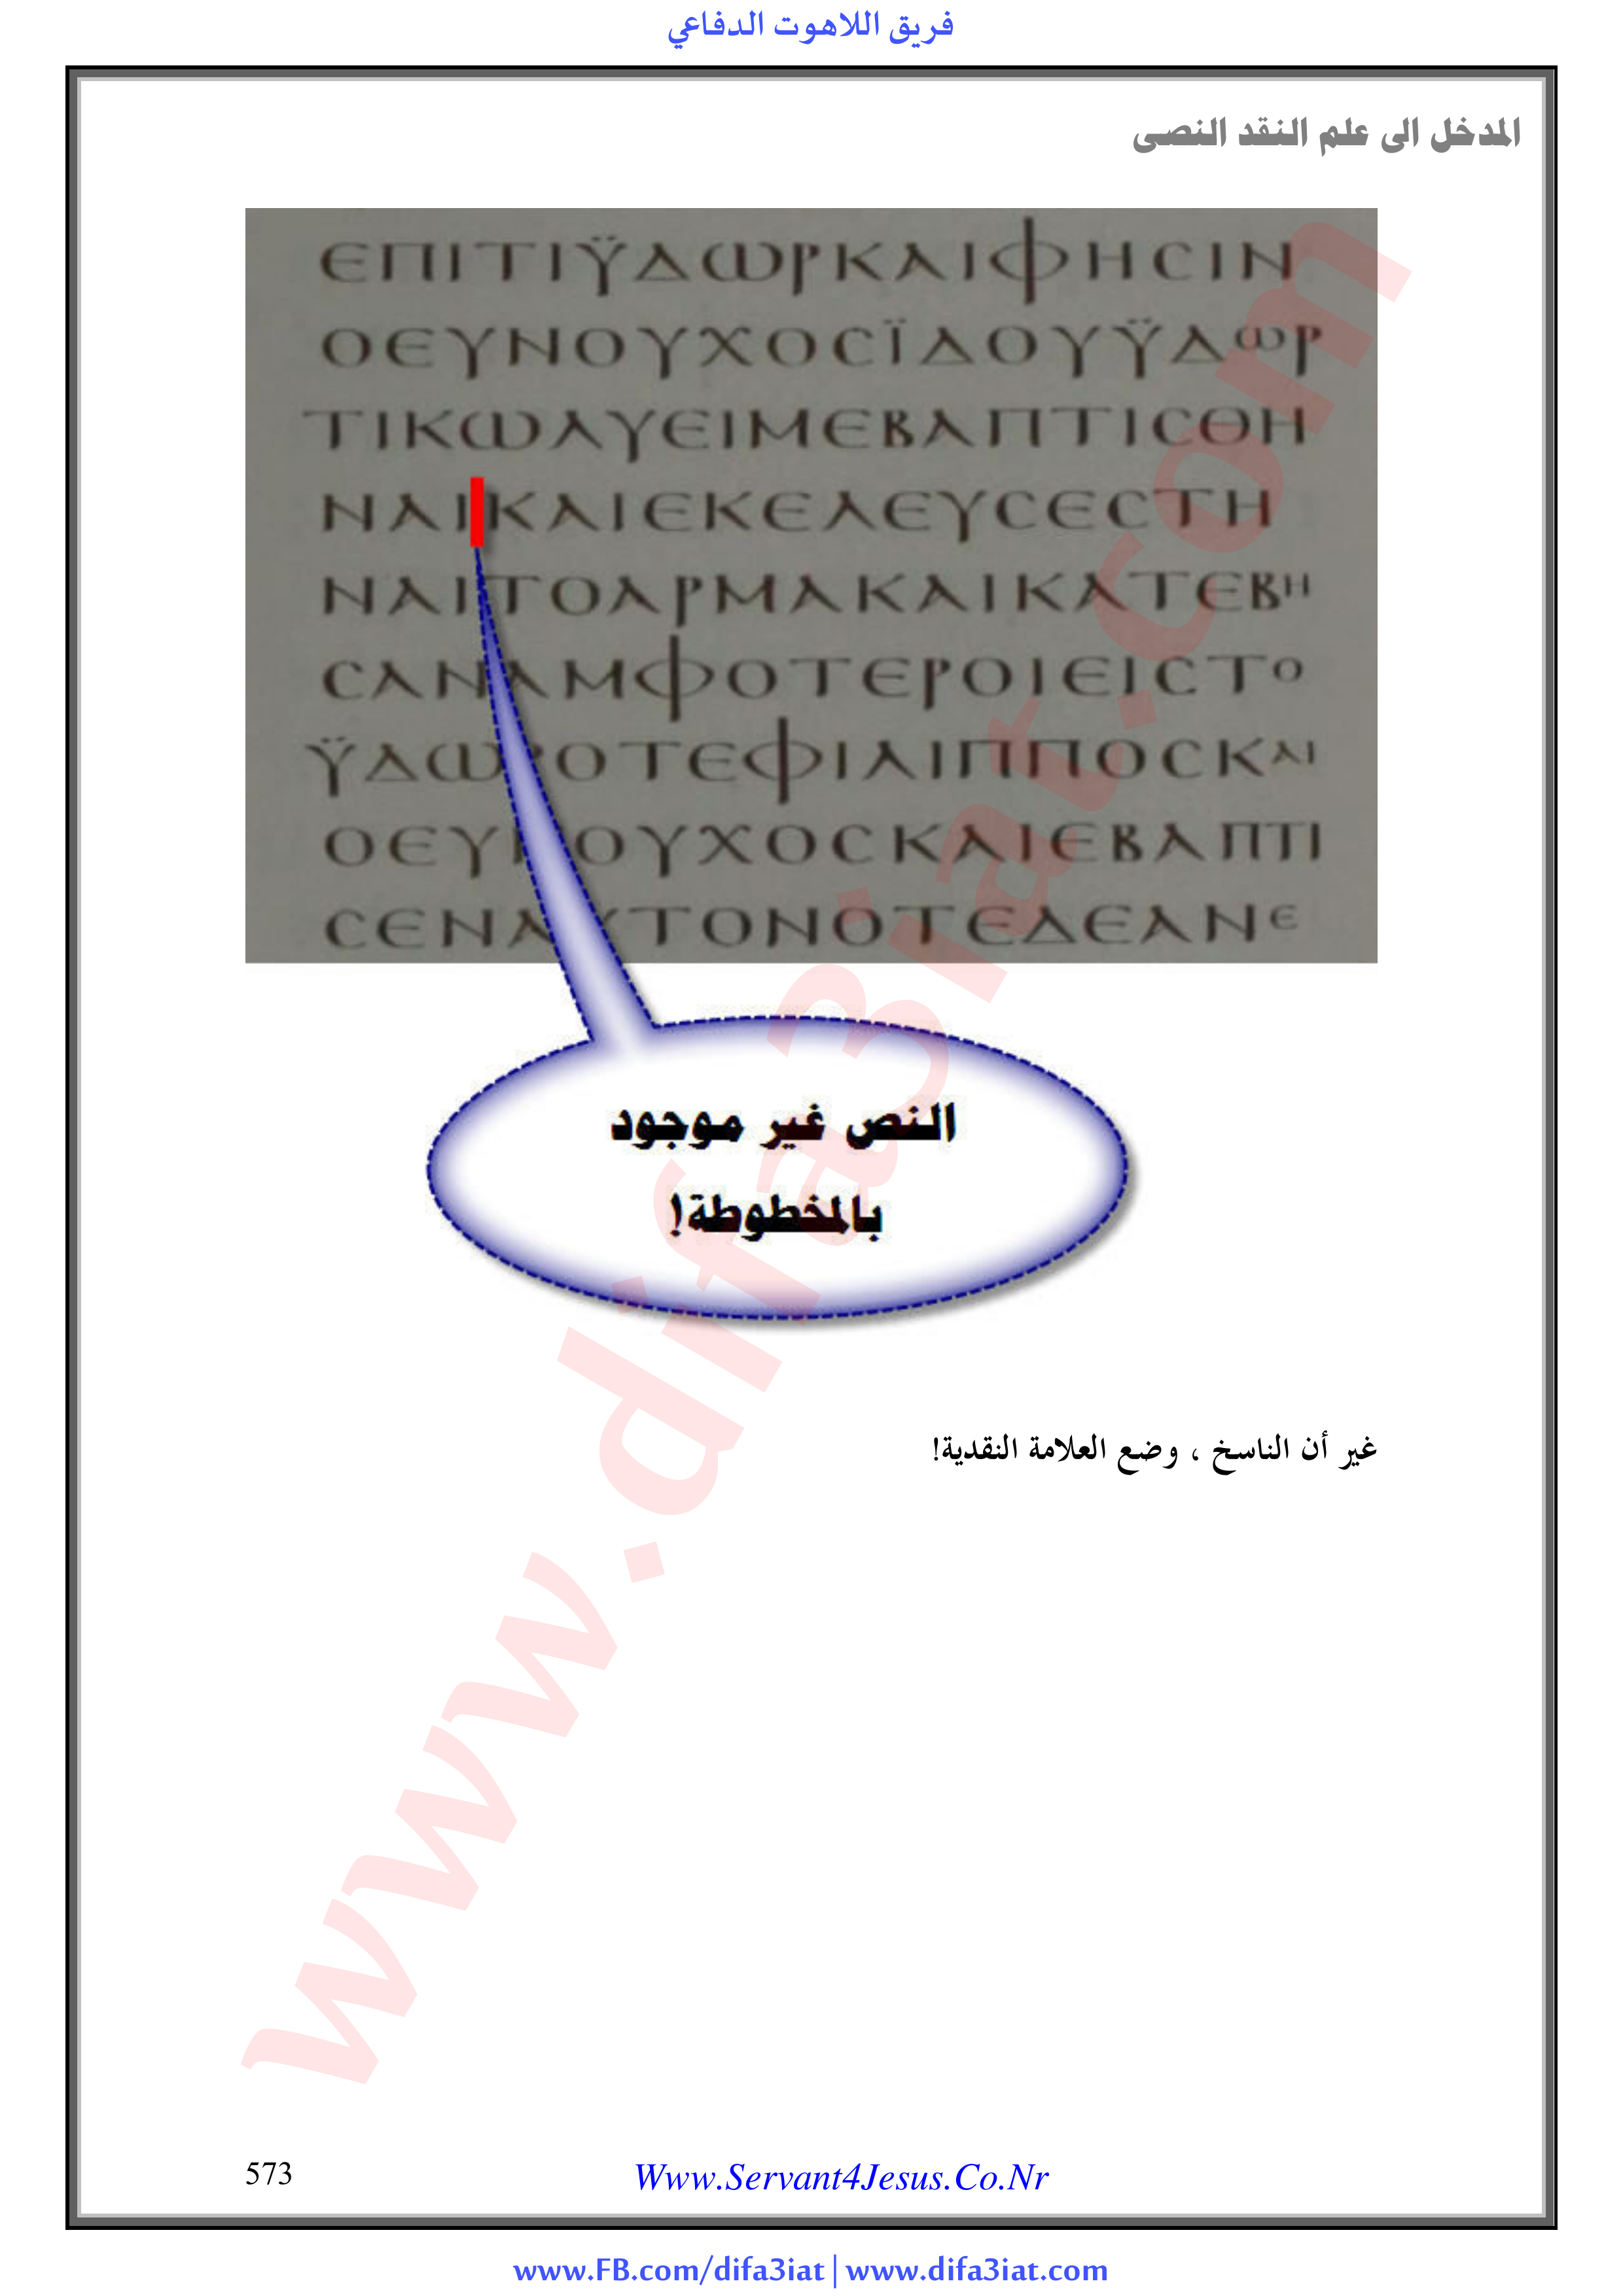 فريق اللاهوت الدفاعي
المدخل الى علم النقد النصى
ΕΠΙΤΙΫΔΩΡΚΑΙΦΗCΙΝ
ΟΕΥΝΟΥΧΟCΪΔΟΥΫΔΩΡ
ΤΙΚΩΛΥΕΙΜΕΒΑΠΤΙCΘΗ
ΝΑΙΚΑΙΕΚΕΛΕΥCΕCΤΗ
ΝΑΙΤΟΑΡΜΑΚΑΙΚΑΤΕΒΗ
CΑΝΑΜΦΟΤΕΡΟΙΕΙCΤΟ
ΫΔΩΡΟΤΕΦΙΛΙΠΠΟCΚΑΙ
ΟΕΥΝΟΥΧΟCΚΑΙΕΒΑΠΤΙ
CΕΝΑΥΤΟΝΟΤΕΔΕΑΝΕ
النص غير موجود
بالمخطوطة!
غير أن الناسخ ، وضع العلامة النقدية!
www.difa3iat.com
573
Www.Servant4Jesus.Co.Nr
www.FB.com/difa3iat | www.difa3iat.com